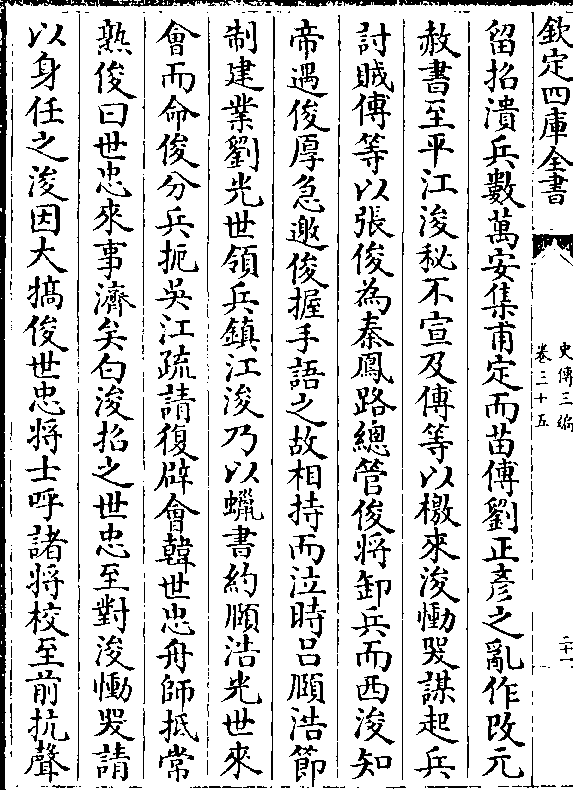 欽定四庫全書
史傳三編
卷三十五
二十一
留招潰兵數萬安集甫定而苗傅劉正彥之亂作改元
赦書至平江浚秘不宣及傅等以檄來浚慟哭謀起兵
討賊傅等以張俊為秦鳳路總管俊將卸兵而西浚知
帝遇俊厚急邀俊握手語之故相持而泣時呂頤浩節
制建業劉光世領兵鎮江浚乃以蠟書約頤浩光世來
會而命俊分兵扼吳江疏請復辟會韓世忠舟師抵常
熟俊曰世忠來事濟矣白浚招之世忠至對浚慟哭請
以身任之浚因大犒俊世忠將士呼諸將校至前抗聲